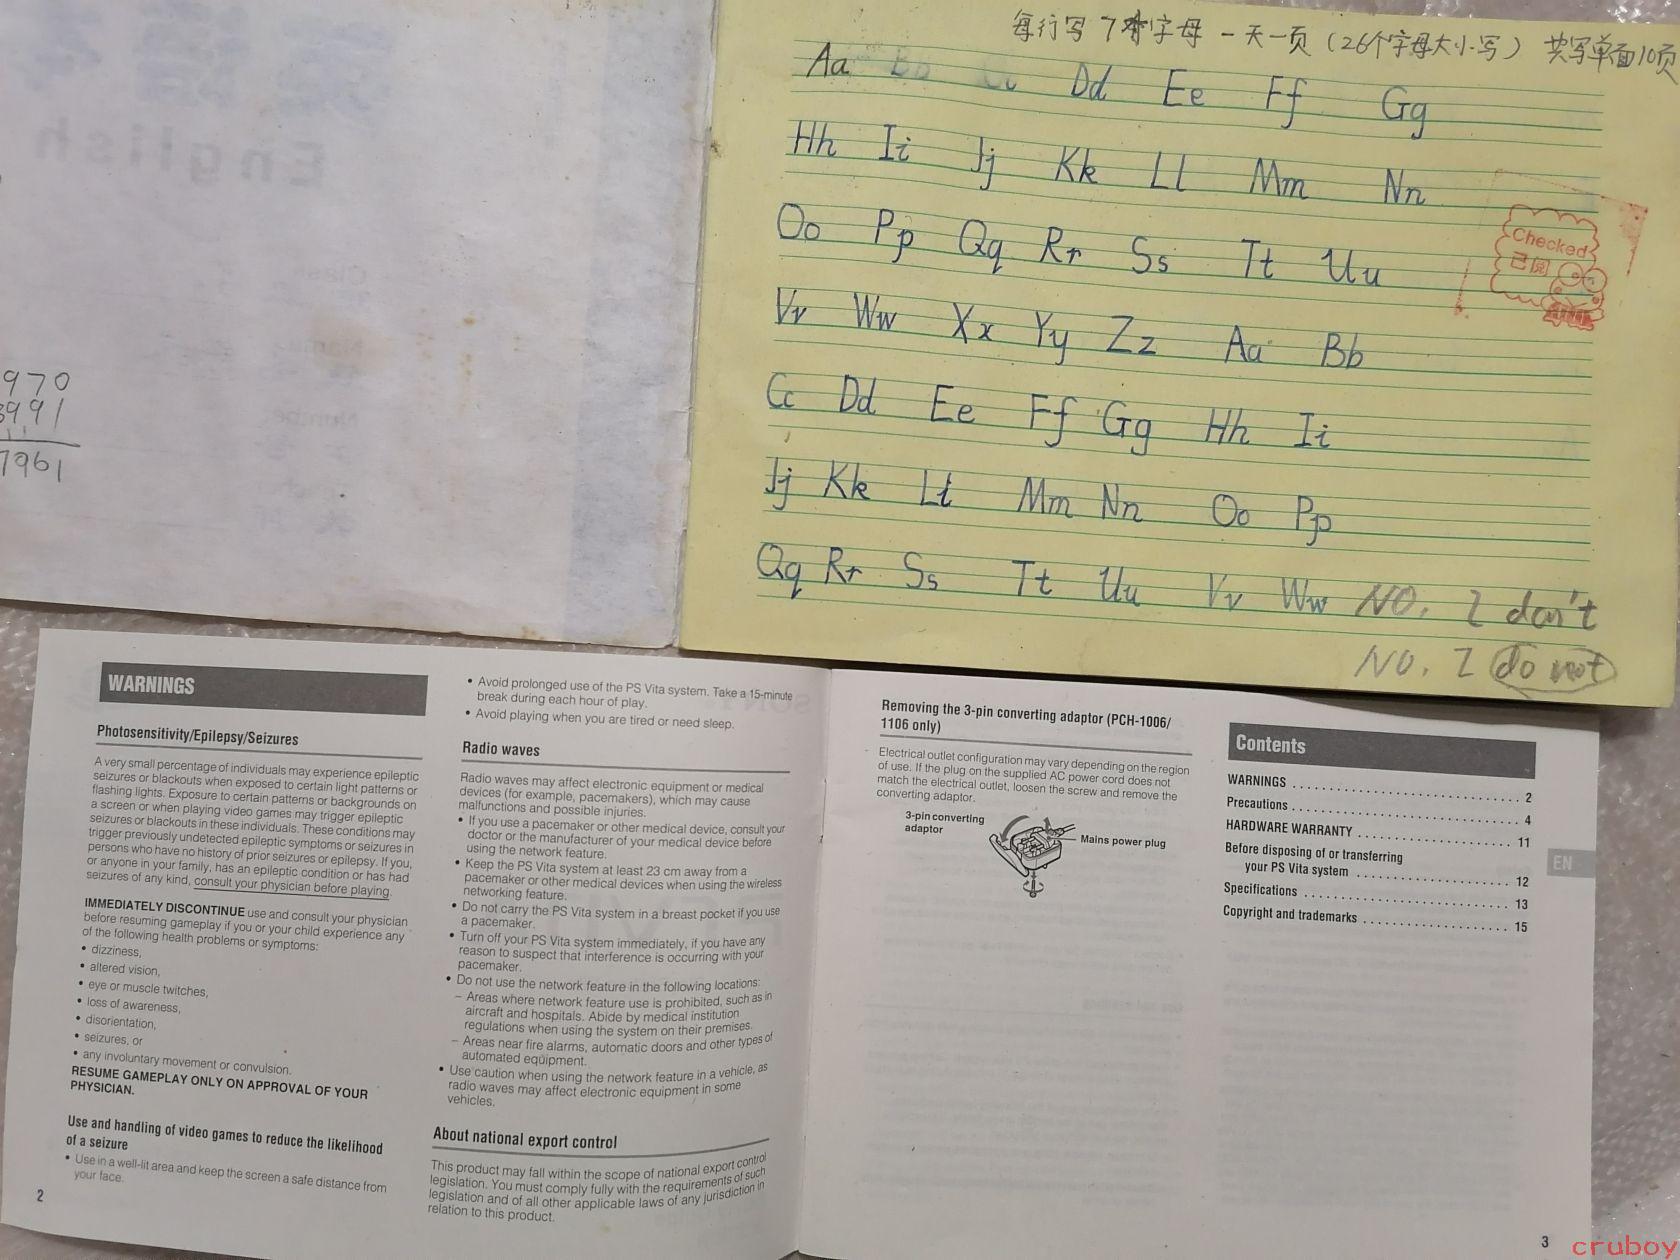 English
970
3991
7961
每行写7个字母 一天一页（26个字母大小写） 共写单面10页
Aa Bb Cc Dd Ee Ff Gg
Hh Ii Jj Kk Ll Mm Nn
Oo Pp Qq Rr Ss Tt Uu
Vv Ww Xx Yy Zz Aa Bb
Cc Dd Ee Ff Gg Hh Ii
Jj Kk Ll Mm Nn Oo Pp
Qq Rr Ss Tt Uu Vv Ww NO. I don't
NO. I do not
Checked
已阅
WARNINGS
Photosensitivity/Epilepsy/Seizures
A very small percentage of individuals may experience epileptic
seizures or blackouts when exposed to certain light patterns or
flashing lights. Exposure to certain patterns or backgrounds on
a screen or when playing video games may trigger epileptic
seizures or blackouts in these individuals. These conditions may
trigger previously undetected epileptic symptoms or seizures in
persons who have no history of prior seizures or epilepsy. If you,
or anyone in your family, has an epileptic condition or has had
seizures of any kind, consult your physician before playing.
IMMEDIATELY DISCONTINUE use and consult your physician
before resuming gameplay if you or your child experience any
of the following health problems or symptoms:
• dizziness,
• altered vision,
• eye or muscle twitches,
• loss of awareness,
• disorientation,
• seizures, or
• any involuntary movement or convulsion.
RESUME GAMEPLAY ONLY ON APPROVAL OF YOUR
PHYSICIAN.
Use and handling of video games to reduce the likelihood
of a seizure
• Use in a well-lit area and keep the screen a safe distance from
your face.
2
• Avoid prolonged use of the PS Vita system. Take a 15-minute
break during each hour of play.
• Avoid playing when you are tired or need sleep.
Radio waves
Radio waves may affect electronic equipment or medical
devices (for example, pacemakers), which may cause
malfunctions and possible injuries.
• If you use a pacemaker or other medical device, consult your
doctor or the manufacturer of your medical device before
using the network feature.
• Keep the PS Vita system at least 23 cm away from a
pacemaker or other medical devices when using the wireless
networking feature.
• Do not carry the PS Vita system in a breast pocket if you use
a pacemaker.
• Turn off your PS Vita system immediately, if you have any
reason to suspect that interference is occurring with your
pacemaker.
• Do not use the network feature in the following locations:
– Areas where network feature use is prohibited, such as in
aircraft and hospitals. Abide by medical institution
regulations when using the system on their premises.
– Areas near fire alarms, automatic doors and other types of
automated equipment.
• Use caution when using the network feature in a vehicle, as
radio waves may affect electronic equipment in some
vehicles.
About national export control
This product may fall within the scope of national export control
legislation. You must comply fully with the requirements of such
legislation and of all other applicable laws of any jurisdiction in
relation to this product.
Removing the 3-pin converting adaptor (PCH-1006/
1106 only)
Electrical outlet configuration may vary depending on the region
of use. If the plug on the supplied AC power cord does not
match the electrical outlet, loosen the screw and remove the
converting adaptor.
3-pin converting
adaptor
Mains power plug
Contents
WARNINGS 2
Precautions 4
HARDWARE WARRANTY 11
Before disposing of or transferring
your PS Vita system 12
Specifications 13
Copyright and trademarks 15
EN
3
cruboy